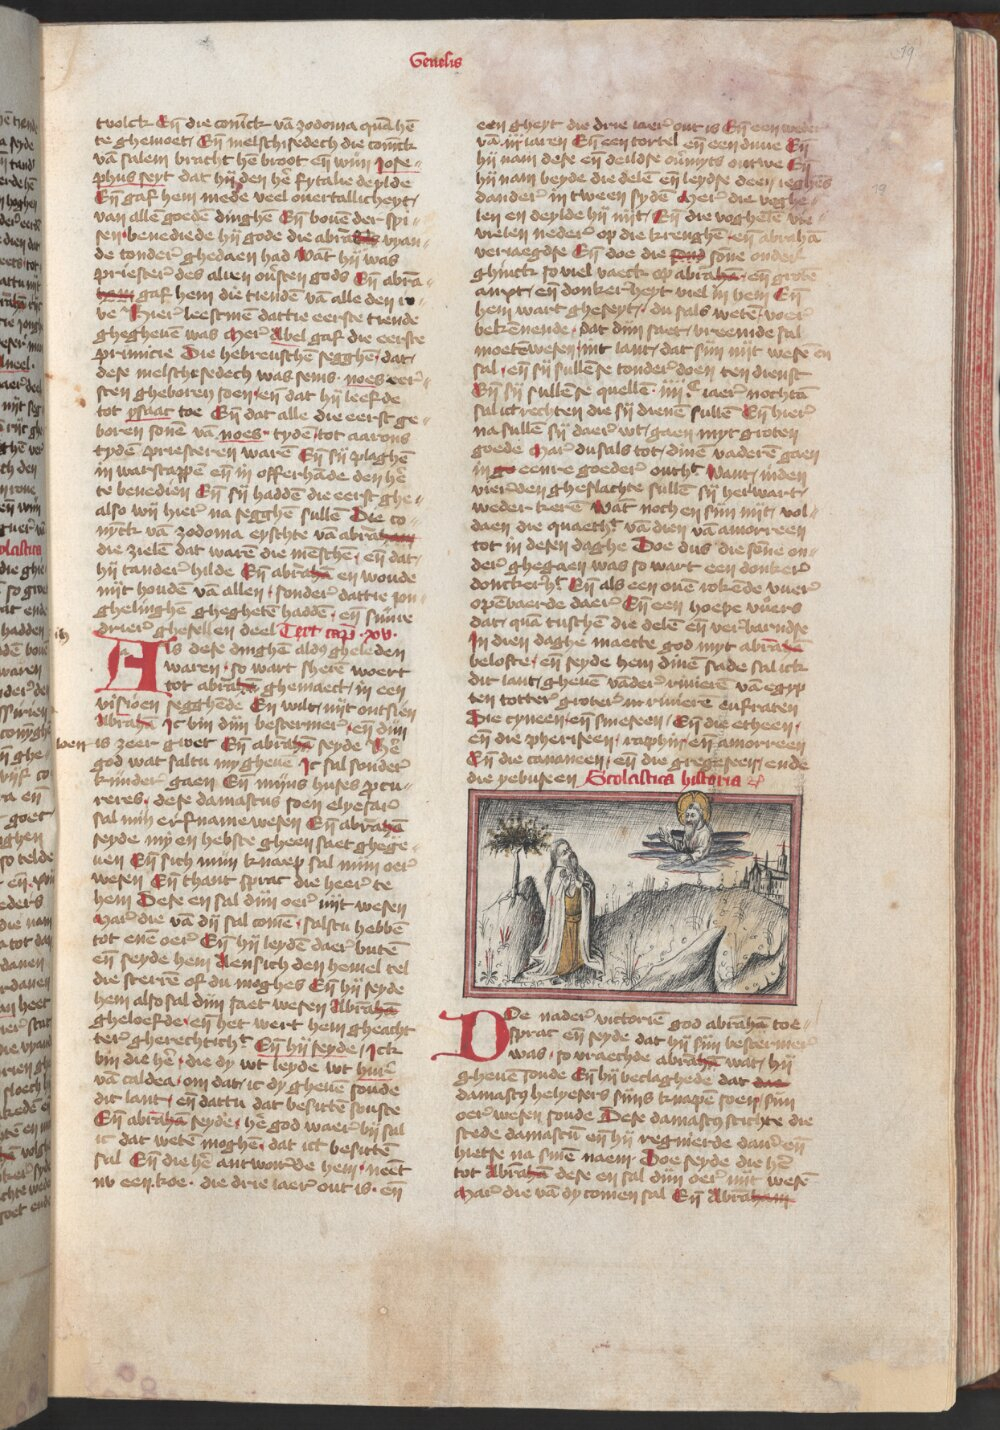 Genesis
19
tvolck Eñ die coninck vā zodoma quā hē
te ghemoet / Eñ melschisedech die coninck
vā salem bracht hē broot eñ wijn Jose-
phus seyt dat hij den hē fytalie deylde
Eñ gaf hem mede veel overtallicheyt /
van allē goedē dinghē Eñ bouē der spi-
sen benediede hij gode die abrahā vyan-
de tonder ghedaen had Wāt hij was
priester des alren ouersten gods Eñ abra-
ham gaf hem die tiendē vā alle den ro-
ve Hier leestmē dattie eerste tiende
gheghevē was Mer Abel gaf die eerste
primicie Die hebreuschē segghē / dat /
dese melchisedech was sems noes eer-
sten gheboren soen / eñ dat hij leefde
tot ysaac toe Eñ dat alle die eerst ge-
boren sonē vā noes tydē tot aarons
tydē priesteren warē Eñ sij plaghē
in warscappē eñ in offerhāde den hē
te benedien Eñ sij haddē die eerst ghe-
also wij hier na segghē sullē Die co-
nynck vā zodoma eyschte vā abraham
die zielē dat warē die meschē / eñ dat /
hij tander hilde Eñ abrahā en woude
nijt houdē vā allen / sonder dattie jon-
ghelinghē gheghetē haddē / eñ sijnre
drier ghesellen deel Text cap. xv.
Als dese dinghē aldus gheleden
waren / so wart sheren woert
tot abrahā ghemaect / in een
visioen segghēde En wilt / nijt ontsien
Abrahā Ic bin dijn beschermer / eñ dijn
loen is zeer groet Eñ abrahā seyde Hē
god wat saltu my ghevē Ic sal sonder
kijnder gaen Eñ mijns huses procu-
reres dese damastus soen elyesar
sal mijn erfname wesen Eñ abrahā
seyde my en hebste gheen saet ghege-
uen Eñ sich mijn knaep sal mijn oer
wesen Eñ thant sprac die heer te
hem Dese en sal dijn oer nijt wesen
Mar die vā dij sal comē / salstu hebbē
tot enē oer Eñ hij leydē daer butē
eñ seyde hem Aensich den hemel tel
die sterrē of du moghes Eñ hij seyde
hem also sal dijn saet wesen Abrahā
gheloefde / eñ het wert hem gheacht
ter gherechtich Eñ hij seyde / Ick
bin die hē / die dy wt leyde wt hur
vā caldea / om dat / ic dy ghevē soude
dit lant / eñ dattu dat besittē soutste
Eñ abrahā seyde / hē god waer bij sal
ic dat wetē moghē / dat ict besittē
sal Eñ die hē antworde hem / neemt
nv een koe / die drie iaer out is / eñ
een gheyt die drie iaer out is Eñ een weder
vā iij iaren Eñ een tortel eñ een duue Eñ
hij nam dese eñ deildse ouermyts ontwe Eñ
hij nam beyde die delē eñ leydse deen ieghēs
dander in tween sydē Mer die voghe-
len en deylde hij nijt / Eñ die voghelē vie-
vielen neder op die krenghē eñ abrahā
veriaegdse Eñ doe die sond sone onder
ghinck so viel vaeck op abraham eñ grote
anxt / eñ donkerheyt viel in hem Eñ
hem wart gheseyt / du sals wetē voer
bekēnende / dat dijn saet / vreemde sal
moetē wesen int lant / dat sijn nijt wesē en
sal / eñ sij sullē se tonder doen ten dienst
Eñ sij sullē se quelle iiij c iaer nochtā
sal ict rechten die sij dienē sullē Eñ hier
na sullē sij daer wt / gaen myt groten
goede Mar du sals tot dinē vaderē gaen
in go eenre goeder outh Want / inden
vierden gheslachte sullē sij herwart /
weder kerē Wāt noch en sijn nijt / vol-
daen die quaeth vā dien vā amorreen
tot in desen daghe Doe dus die sone on-
der ghegaen was so wart een donker
donckerh Eñ als een ouē rokēde vuer
opēbaerde daer Eñ een hoepe vuers
dat / quā tuschē die delē eñ verbarndse
In dien daghe maecte god myt abrahā
beloste / eñ seyde hem dinē sade sal ick
dit lant / ghevē vāder rivierē vā egyp
ten totter groter nrivierē eufraten
Die cyneen / eñ sineseen / Eñ die etheen /
eñ die pheriseen / raphin / eñ amorreen
Eñ die cananeen / eñ die gregeseen / ende
die yebuseen Scolastica historia
Doe nader victoriē god abrahā toe-
sprac eñ seyde dat hij sijn beschermer
was / so vraechde abrahā wat / hij
ghevē soude Eñ hij beclaghede dat dae
damastus helyesers sijns knapē soen / sijn
oer wesen soude Dese damastus stichte die
stede damascū eñ hij regnierde daer eñ
hietse na sinē naem Doe seyde die hē
tot Abrahā dese en sal dijn oer nijt wesē
Mar die vā dy comen sal Eñ Abraham